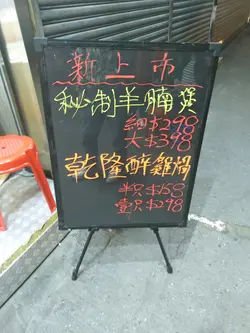 新上市
秘制羊腩煲
細$298
大$398
乾隆醉雞煲
半只$158
壹只$298